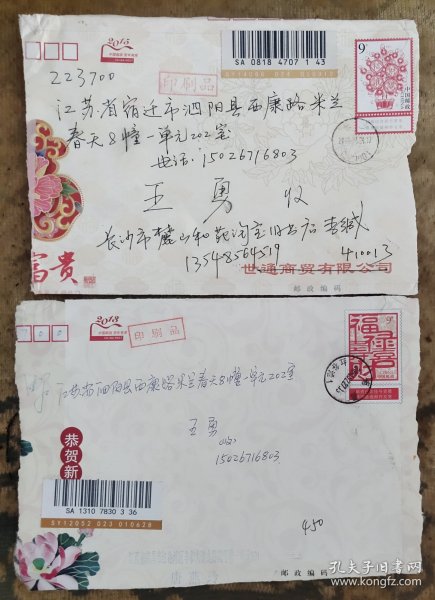 2013
印刷品
SA 0818 4707 1 43
9
中国邮政
223700
江苏省宿迁市泗阳县西康路米兰
春天8幢一单元202室
电话:15026716803
王勇 收
长沙市麓山和苑淘宝旧书店 李缄
13548564519 410013
富贵
世通商贸有限公司
邮政编码
2013
印刷品
江苏省泗阳县西康路米兰春天8幢一单元202室
王勇
收
15026716803
恭贺新
SA 1310 7830 3 36
SY12052 023 010628
450
邮政编码
孔夫子旧书网
www.kongfz.com